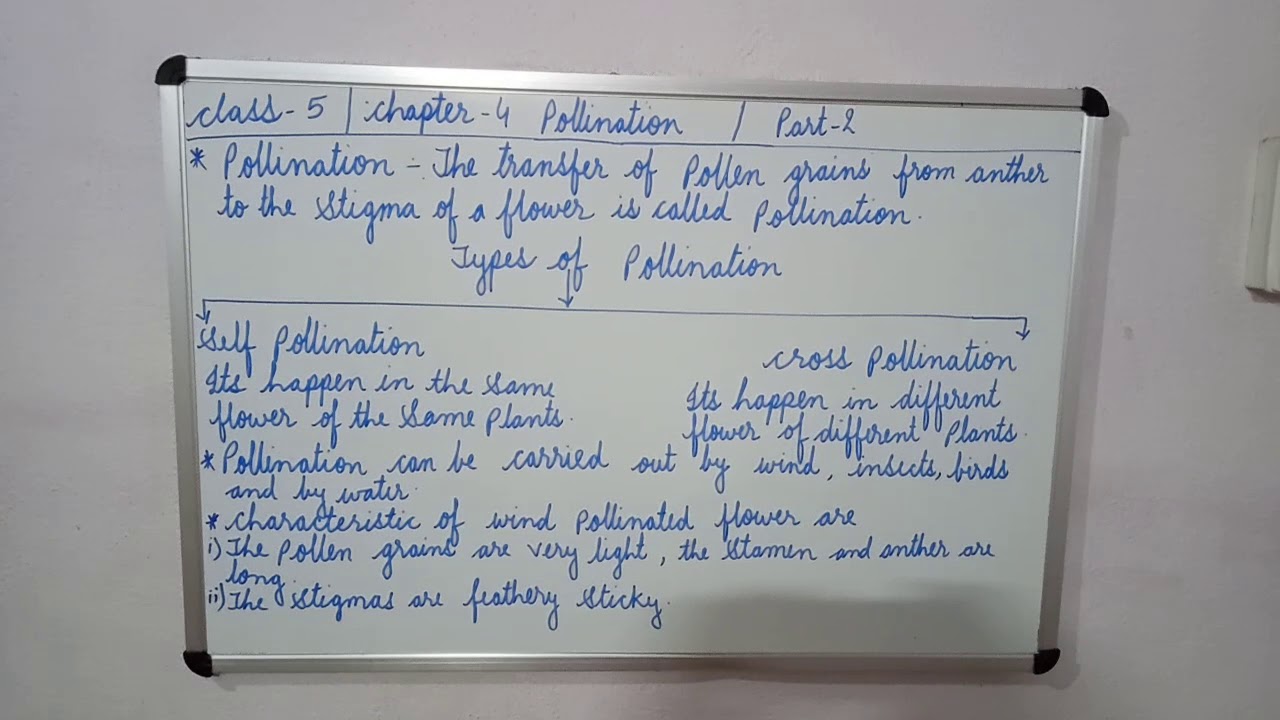 class-5 | chapter-4 Pollination / Part-2
* Pollination - The transfer of Pollen grains from anther
to the stigma of a flower is called Pollination.
Types of Pollination
Self Pollination
Its happen in the same
flower of the same Plants.
cross Pollination
Its happen in different
flower of different Plants.
* Pollination can be carried out by wind, insects, birds
and by water.
* characteristic of wind pollinated flower are
i) The pollen grains are very light, the stamen and anther are
long.
ii) The stigmas are feathery sticky.